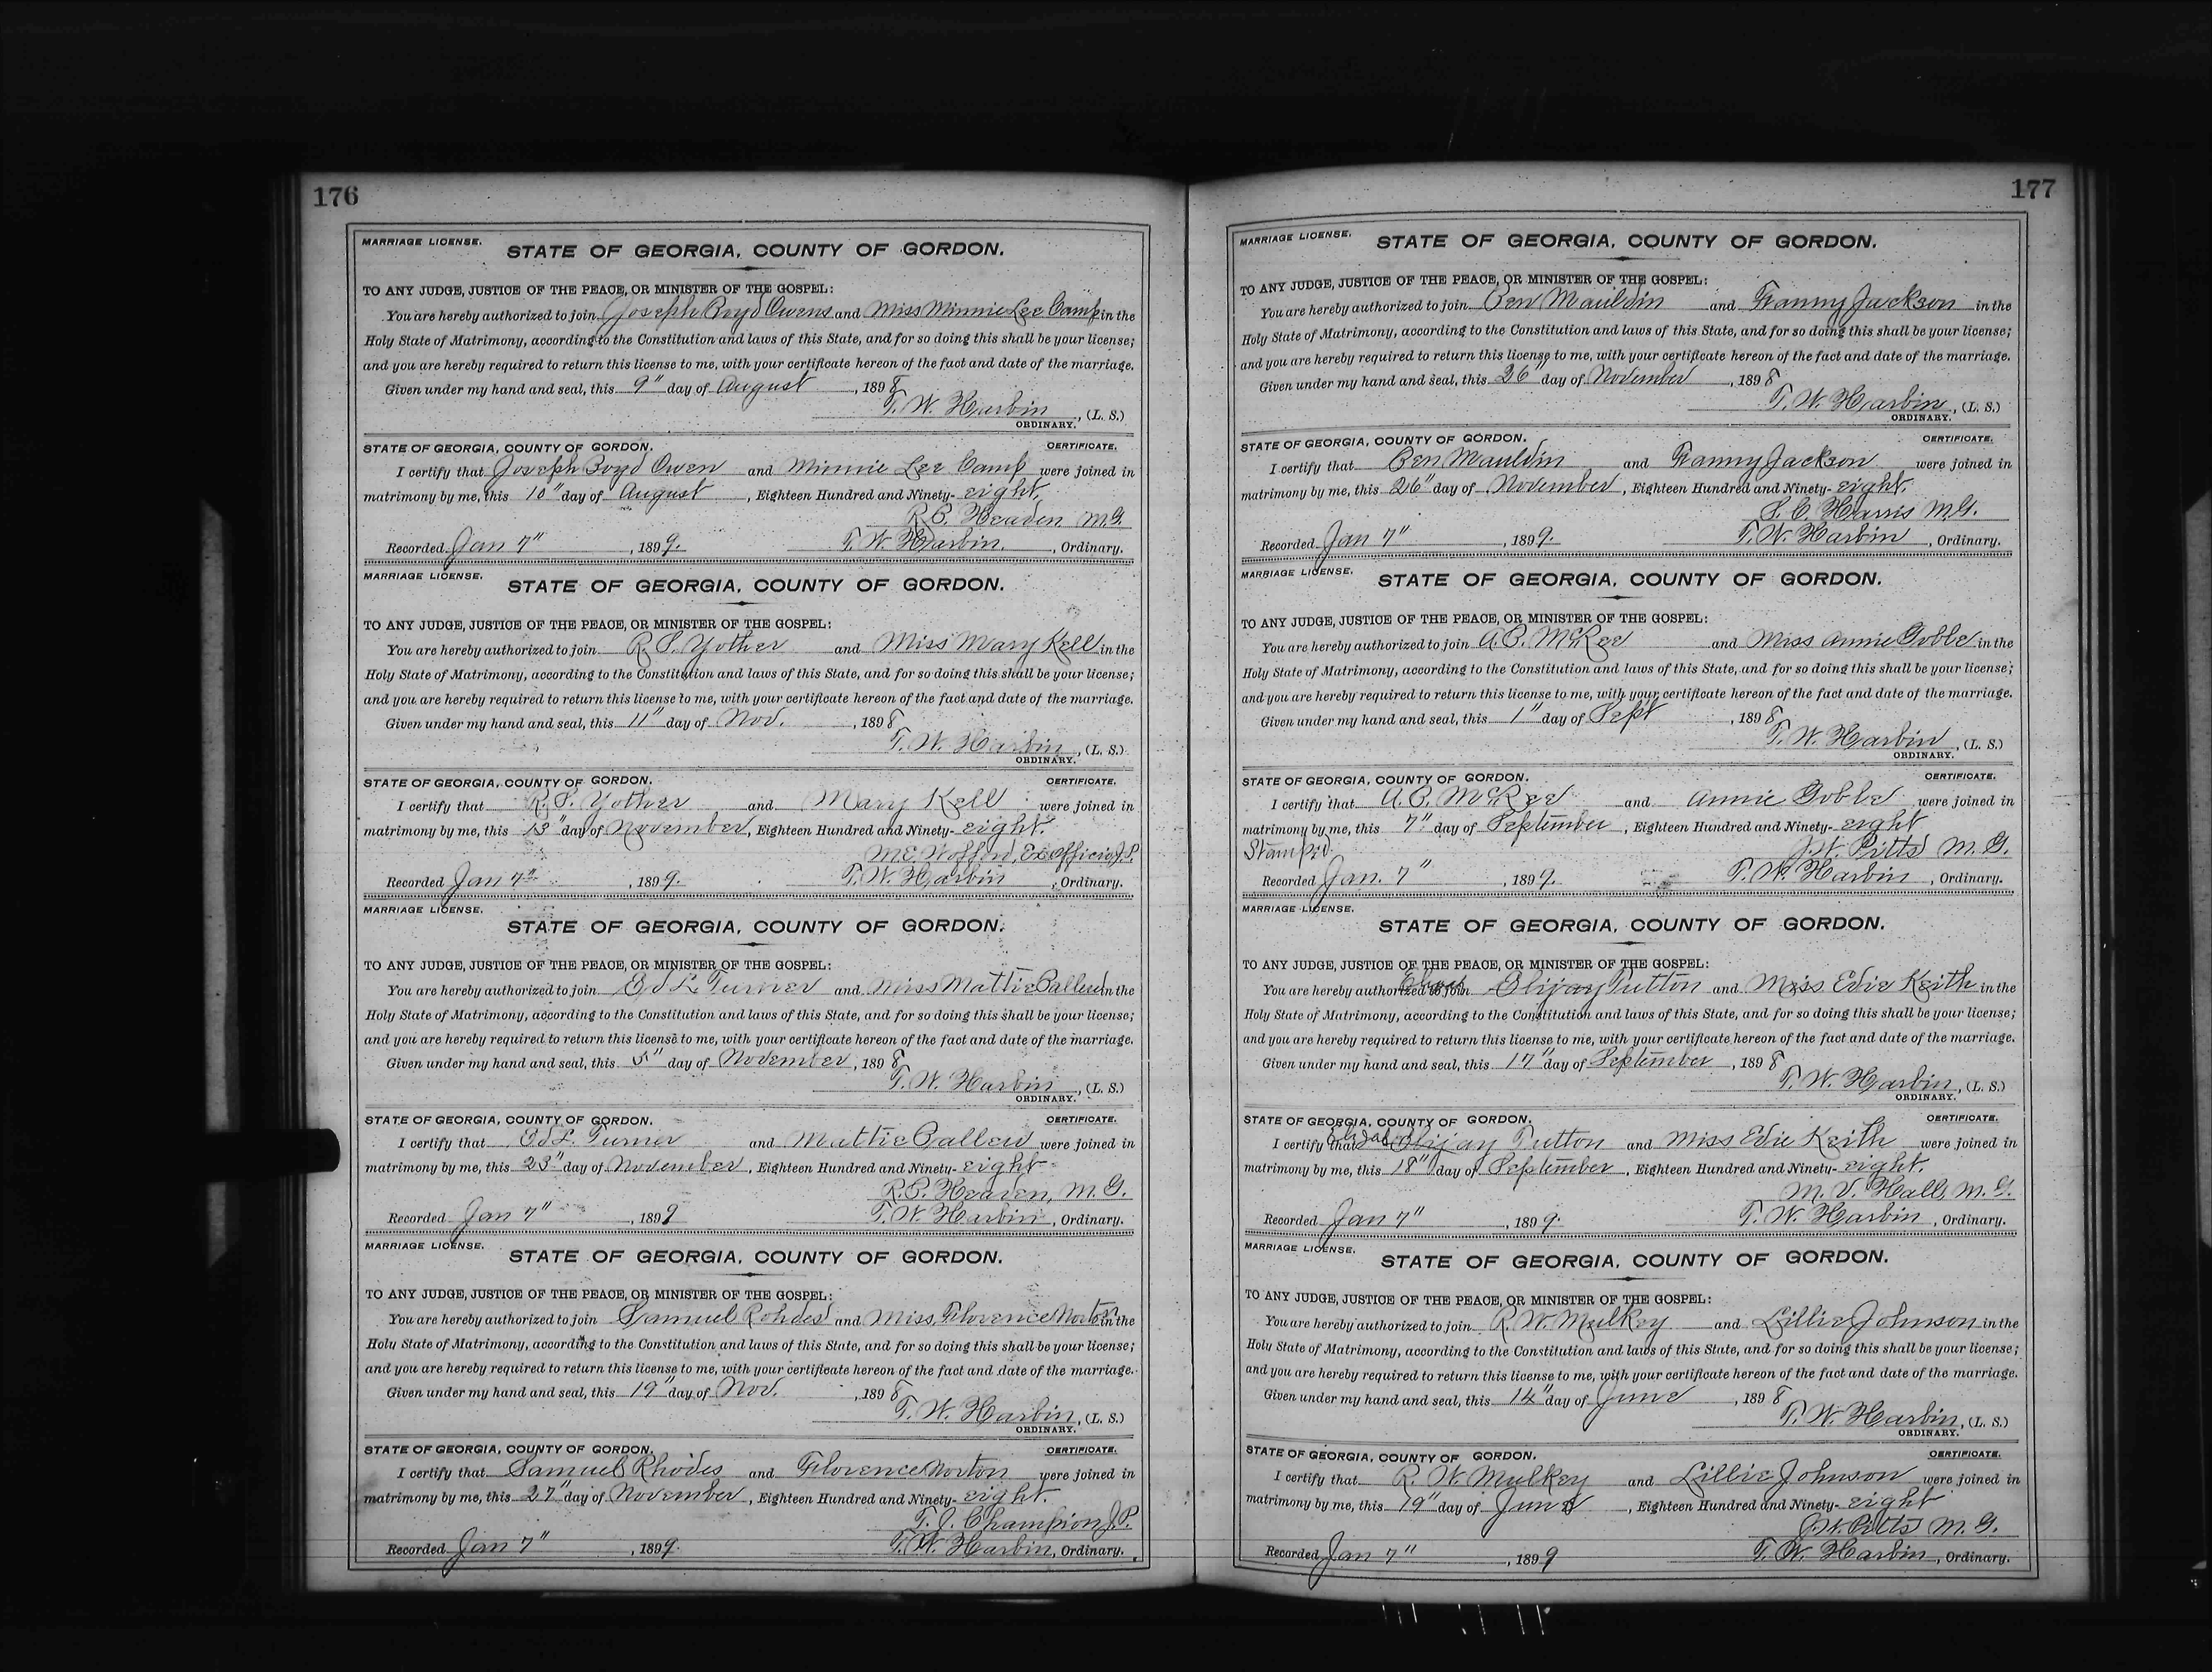 176
MARRIAGE LICENSE.
STATE OF GEORGIA, COUNTY OF GORDON.
TO ANY JUDGE, JUSTICE OF THE PEACE, OR MINISTER OF THE GOSPEL:
You are hereby authorized to join Joseph Boyd Owens and Miss Minnie Lee Camp in the
Holy State of Matrimony, according to the Constitution and laws of this State, and for so doing this shall be your license;
and you are hereby required to return this license to me, with your certificate hereon of the fact and date of the marriage.
Given under my hand and seal, this 9" day of August, 1898
T. W. Harbin, (L. S.)
ORDINARY.
STATE OF GEORGIA, COUNTY OF GORDON. CERTIFICATE.
I certify that Joseph Boyd Owen and Minnie Lee Camp were joined in
matrimony by me, this 10" day of August, Eighteen Hundred and Ninety-eight.
R. B. Headen M.G.
Recorded Jan 7" , 1899. T. W. Harbin, Ordinary.
MARRIAGE LICENSE.
STATE OF GEORGIA, COUNTY OF GORDON.
TO ANY JUDGE, JUSTICE OF THE PEACE, OR MINISTER OF THE GOSPEL:
You are hereby authorized to join R. S. Yother and Miss Mary Kell in the
Holy State of Matrimony, according to the Constitution and laws of this State, and for so doing this shall be your license;
and you are hereby required to return this license to me, with your certificate hereon of the fact and date of the marriage.
Given under my hand and seal, this 11" day of Nov. , 1898
T. W. Harbin, (L. S.)
ORDINARY.
STATE OF GEORGIA, COUNTY OF GORDON. CERTIFICATE.
I certify that R. S. Yother and Mary Kell were joined in
matrimony by me, this 13" day of November, Eighteen Hundred and Ninety-eight.
M.E. Wofford, Ex officio J.P.
Recorded Jan 7" , 1899. T. W. Harbin, Ordinary.
MARRIAGE LICENSE.
STATE OF GEORGIA, COUNTY OF GORDON.
TO ANY JUDGE, JUSTICE OF THE PEACE, OR MINISTER OF THE GOSPEL:
You are hereby authorized to join Ed L. Turner and Miss Mattie Ballew in the
Holy State of Matrimony, according to the Constitution and laws of this State, and for so doing this shall be your license;
and you are hereby required to return this license to me, with your certificate hereon of the fact and date of the marriage.
Given under my hand and seal, this 5" day of November, 1898
T. W. Harbin, (L. S.)
ORDINARY.
STATE OF GEORGIA, COUNTY OF GORDON. CERTIFICATE.
I certify that Ed L. Turner and Mattie Ballew were joined in
matrimony by me, this 23" day of November, Eighteen Hundred and Ninety-eight
R. B. Headen, M. G.
Recorded Jan 7" , 1899 T. W. Harbin, Ordinary.
MARRIAGE LICENSE.
STATE OF GEORGIA, COUNTY OF GORDON.
TO ANY JUDGE, JUSTICE OF THE PEACE, OR MINISTER OF THE GOSPEL:
You are hereby authorized to join Samuel Rohdes and Miss Florence Norton in the
Holy State of Matrimony, according to the Constitution and laws of this State, and for so doing this shall be your license;
and you are hereby required to return this license to me, with your certificate hereon of the fact and date of the marriage.
Given under my hand and seal, this 19" day of Nov. , 1898
T. W. Harbin, (L. S.)
ORDINARY.
STATE OF GEORGIA, COUNTY OF GORDON. CERTIFICATE.
I certify that Samuel Rhodes and Florence Norton were joined in
matrimony by me, this 27" day of November, Eighteen Hundred and Ninety-eight.
T. J. Champion J.P.
Recorded Jan 7" , 1899. T. W. Harbin, Ordinary.
177
MARRIAGE LICENSE.
STATE OF GEORGIA, COUNTY OF GORDON.
TO ANY JUDGE, JUSTICE OF THE PEACE, OR MINISTER OF THE GOSPEL:
You are hereby authorized to join Ben Mauldin and Fanny Jackson in the
Holy State of Matrimony, according to the Constitution and laws of this State, and for so doing this shall be your license;
and you are hereby required to return this license to me, with your certificate hereon of the fact and date of the marriage.
Given under my hand and seal, this 26" day of November, 1898
T. W. Harbin, (L. S.)
ORDINARY.
STATE OF GEORGIA, COUNTY OF GORDON. CERTIFICATE.
I certify that Ben Mauldin and Fanny Jackson were joined in
matrimony by me, this 26" day of November, Eighteen Hundred and Ninety-eight.
S. C. Harris M.G.
Recorded Jan 7" , 1899. T. W. Harbin, Ordinary.
MARRIAGE LICENSE.
STATE OF GEORGIA, COUNTY OF GORDON.
TO ANY JUDGE, JUSTICE OF THE PEACE, OR MINISTER OF THE GOSPEL:
You are hereby authorized to join A. B. McKee and Miss Annie Gobble in the
Holy State of Matrimony, according to the Constitution and laws of this State, and for so doing this shall be your license;
and you are hereby required to return this license to me, with your certificate hereon of the fact and date of the marriage.
Given under my hand and seal, this 1" day of Sept , 1898
T. W. Harbin, (L. S.)
ORDINARY.
STATE OF GEORGIA, COUNTY OF GORDON. CERTIFICATE.
I certify that A. B. McKee and Annie Gobble were joined in
matrimony by me, this 7" day of September, Eighteen Hundred and Ninety-eight
Stamped. J. W. Pitts M. G.
Recorded Jan. 7" , 1899. T. W. Harbin, Ordinary.
MARRIAGE LICENSE.
STATE OF GEORGIA, COUNTY OF GORDON.
TO ANY JUDGE, JUSTICE OF THE PEACE, OR MINISTER OF THE GOSPEL:
You are hereby authorized to join Elijay Tutton and Miss Edie Keith in the
Holy State of Matrimony, according to the Constitution and laws of this State, and for so doing this shall be your license;
and you are hereby required to return this license to me, with your certificate hereon of the fact and date of the marriage.
Given under my hand and seal, this 17" day of September, 1898
T. W. Harbin, (L. S.)
ORDINARY.
STATE OF GEORGIA, COUNTY OF GORDON. CERTIFICATE.
I certify that Elijay Tutton and Miss Edie Keith were joined in
matrimony by me, this 18" day of September, Eighteen Hundred and Ninety-eight.
M. V. Hall, M. G.
Recorded Jan 7" , 1899. T. W. Harbin, Ordinary.
MARRIAGE LICENSE.
STATE OF GEORGIA, COUNTY OF GORDON.
TO ANY JUDGE, JUSTICE OF THE PEACE, OR MINISTER OF THE GOSPEL:
You are hereby authorized to join R. W. Mulkey and Lillie Johnson in the
Holy State of Matrimony, according to the Constitution and laws of this State, and for so doing this shall be your license;
and you are hereby required to return this license to me, with your certificate hereon of the fact and date of the marriage.
Given under my hand and seal, this 14" day of June , 1898
T. W. Harbin, (L. S.)
ORDINARY.
STATE OF GEORGIA, COUNTY OF GORDON. CERTIFICATE.
I certify that R. W. Mulkey and Lillie Johnson were joined in
matrimony by me, this 19" day of June , Eighteen Hundred and Ninety-eight
J. W. Pitts M. G.
Recorded Jan 7" , 1899 T. W. Harbin, Ordinary.